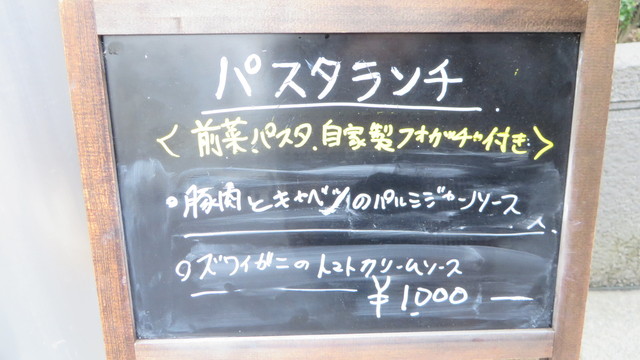 パスタランチ
〈前菜.パスタ.自家製フォカッチャ付き〉
豚肉とキャベツのパルミジャーノソース
ズワイガニのトマトクリームソース
¥1,000